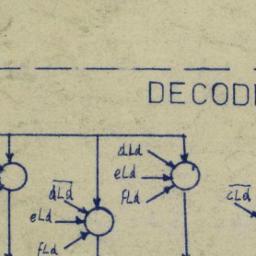 DECOD
dLd
eLd
fLd
d̅L̅d̅
eLd
fLd
c̅L̅d̅